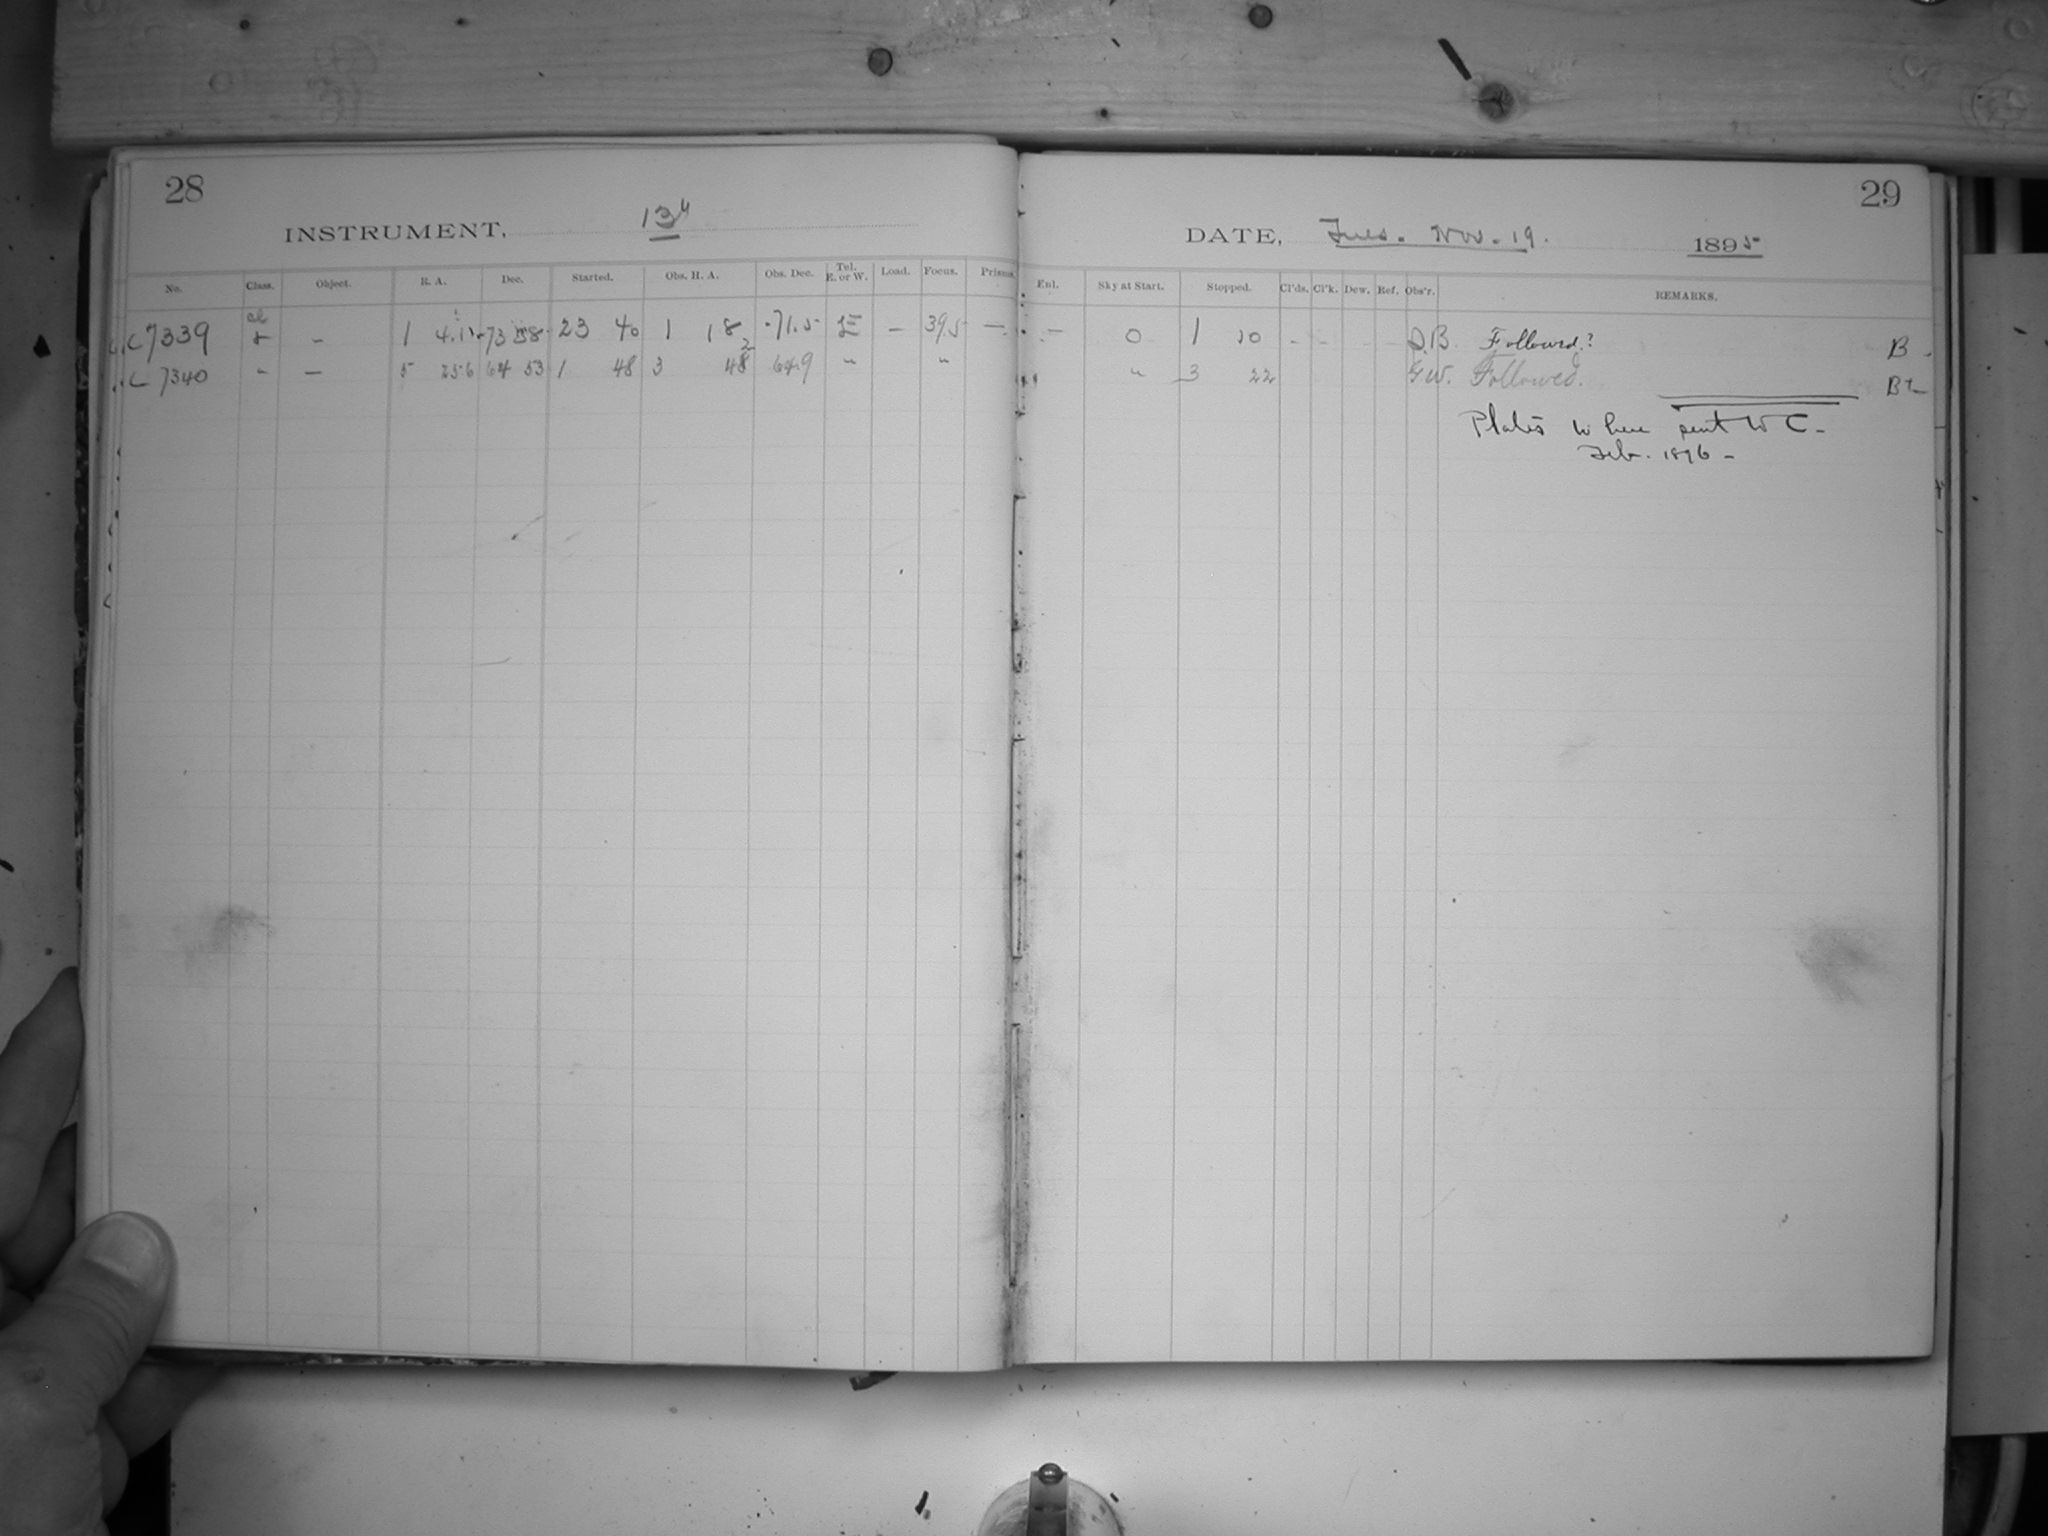 28
INSTRUMENT, 13"
No. Class. Object. R. A. Dec. Started. Obs. H. A. Obs. Dec. Tel. E. or W. Load. Focus. Prisms.
C 7339 - 1 23 40 1 18 71.5 E - 39.5 -
C 7340 " - 5 25 6 64 53 1 48 3 48 64.9 " "
29
DATE, Tues. Nov. 19. 1895
Enl. Sky at Start. Stopped. Cl'ds. Cl'k. Dew. Ref. Obs'r. REMARKS.
- 0 1 10 - - - - D.B. Followed.? B -
" 3 22 G.W. Followed.
Plates to here sent to C -
Feb. 1896 -